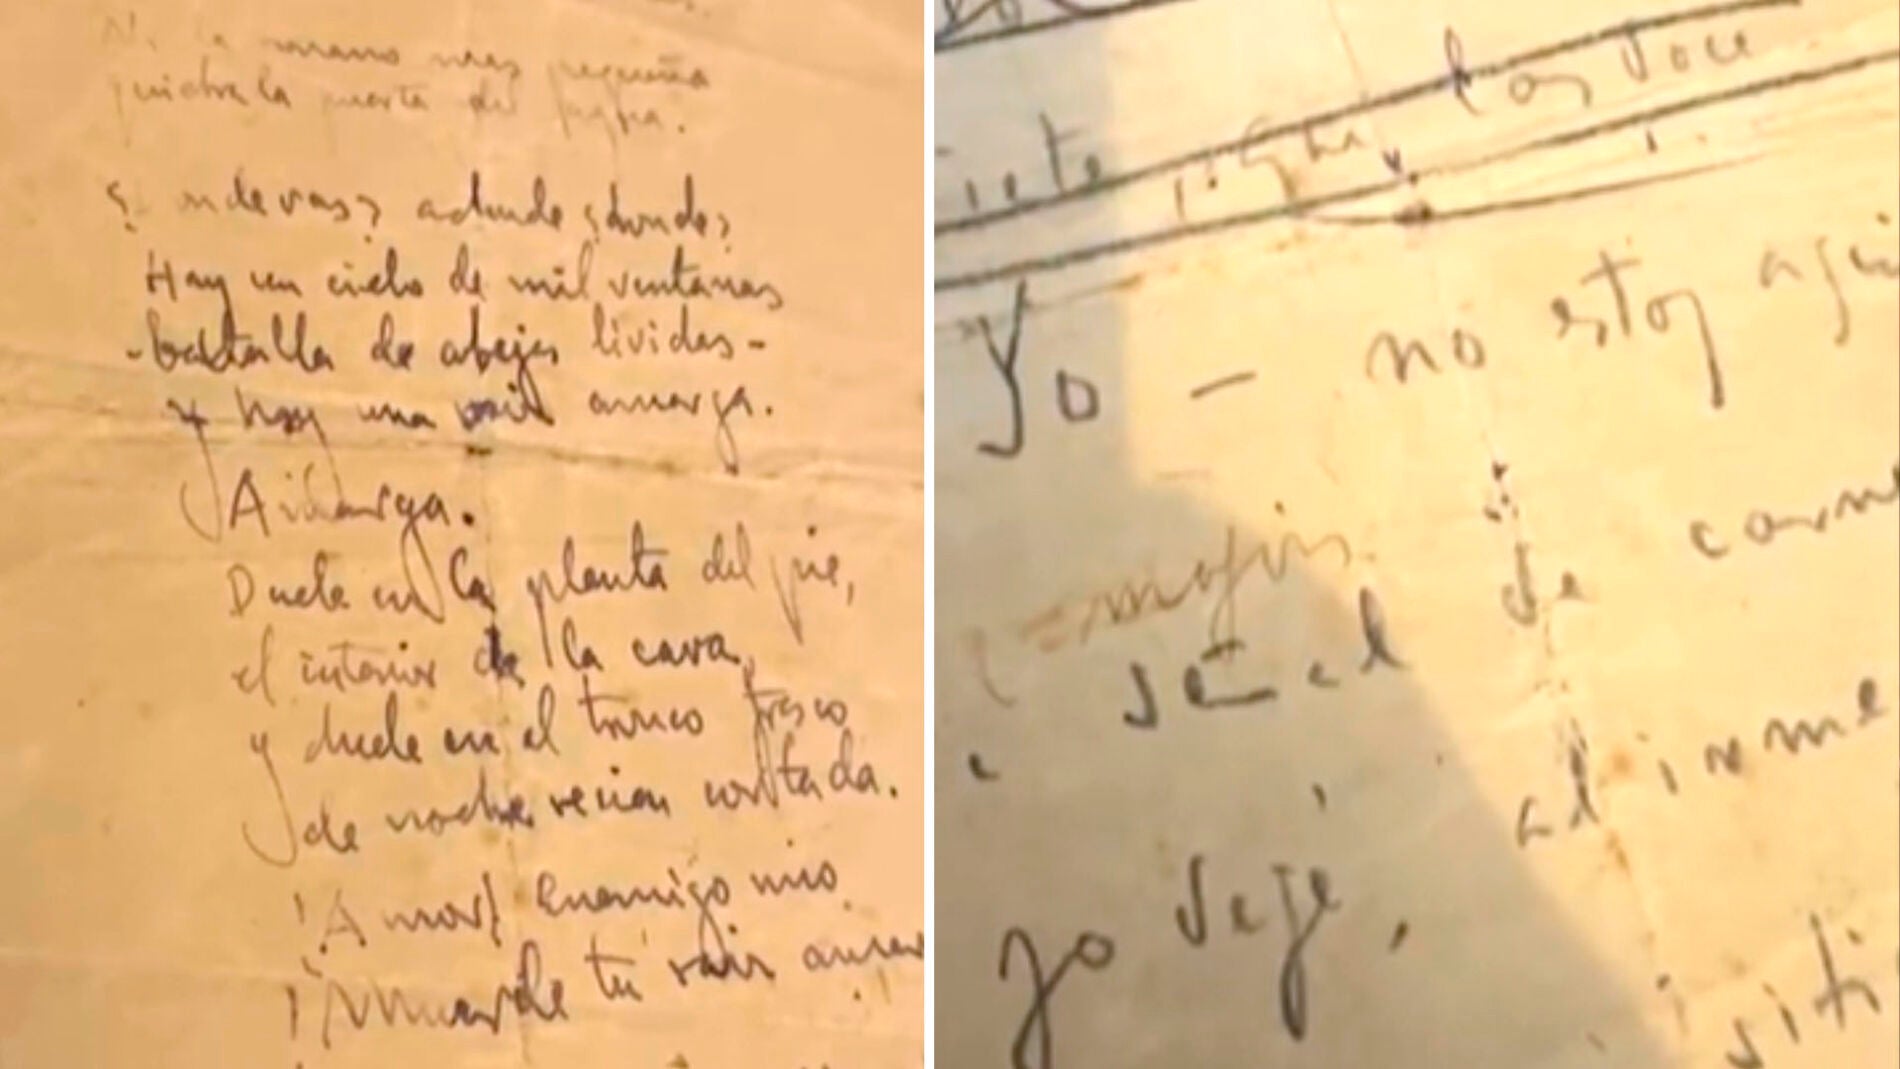 Ni la mano más pequeña
quiebra la puerta del agua.
¿ ndevas? adonde ¿donde?
Hay un cielo de mil ventanas
-batalla de abejas lívidas-
y hay una raiz amarga.
Amarga.
Duele en la planta del pie,
el interior de la cara,
y duele en el tronco fresco
de noche recien cortada.
¡Amor! Enemigo mio
¡Muerde tu raiz amar
iete las doce
Yo - no estoy aqui
de carne
se el
al inme
yo dejé,
siti